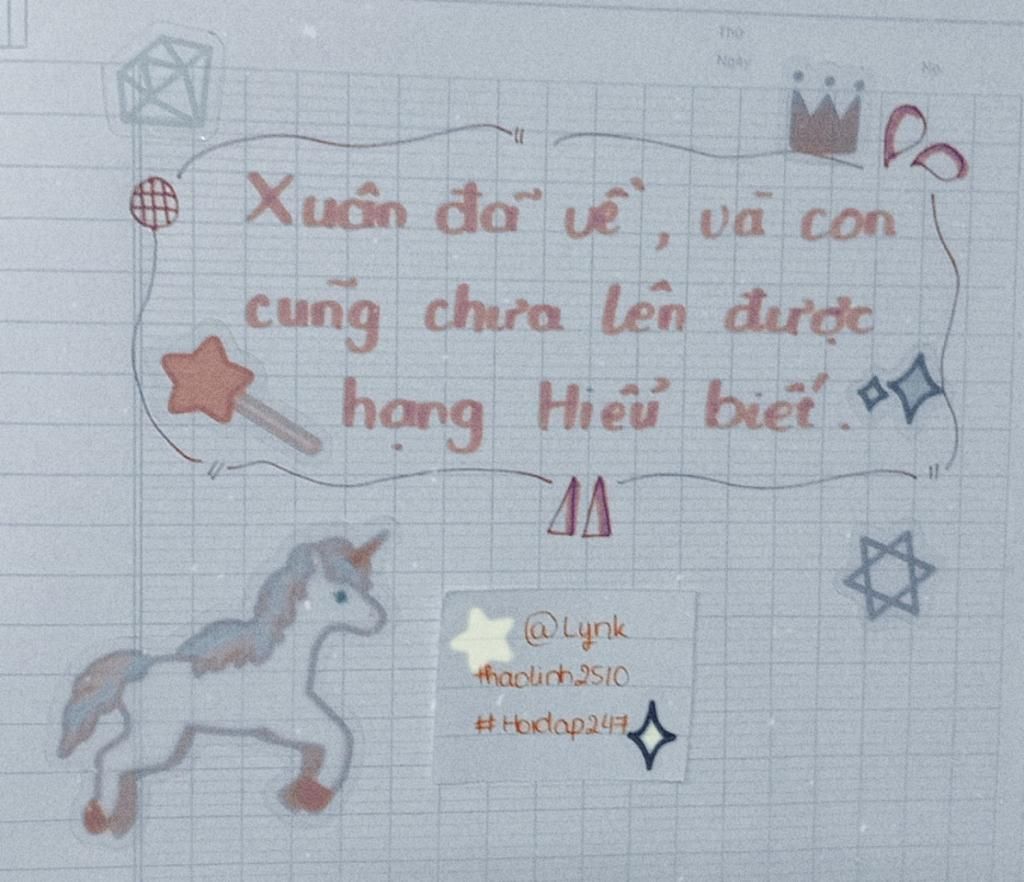 Thứ
Ngày
No.
Xuân đã về, và con
cũng chưa lên được
hạng Hiểu biết.
@Lynk
thaolinh2510
#Hoidap247